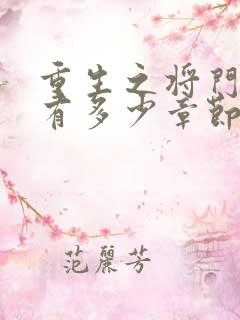 重生之将門
有多少章節
范麗芳